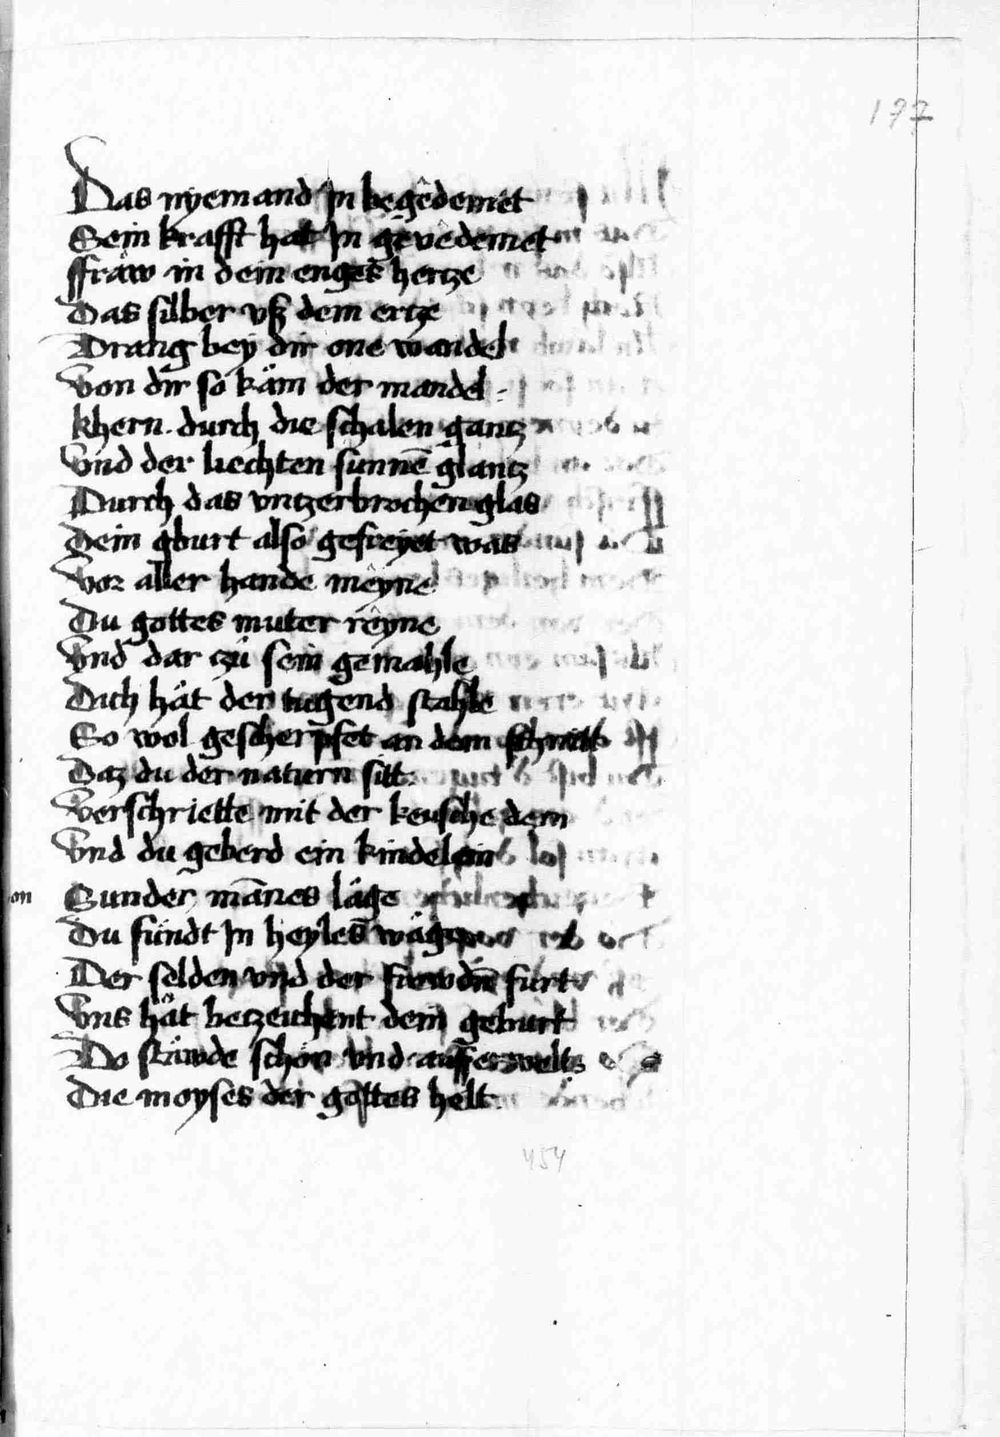 177
Das nyemand Jn begêdemet
Sein krafft hat Jn gevêdemet
ffraw in dein enges hertze
Das silber vß dem ertze
Drang bey dir one wandel
Von dir so käm der mandel
khern durch die schalen gantz
Vnd der liechten sunnē glantz
Durch das vntzerbrochen glas
Dein gburt also gefreyet was
Vor aller hande mêyne
Du gottes muter rêyne
Vnd dar zů sein gemahle
Dich hât der tugend stahle
So wol gescherpfet an dem schnitt
Daz du der naturn sitt
Verschriette mit der keusche dem
Vnd du geberd ein kindelein
Sunder mānes läge
Du fündt Jn heyles wäge
Der selden vnd der furt
Vns hât betzeichent dein geburt
Do stäwde schön vnd ausserwelt
Die moyses der gottes helt
454